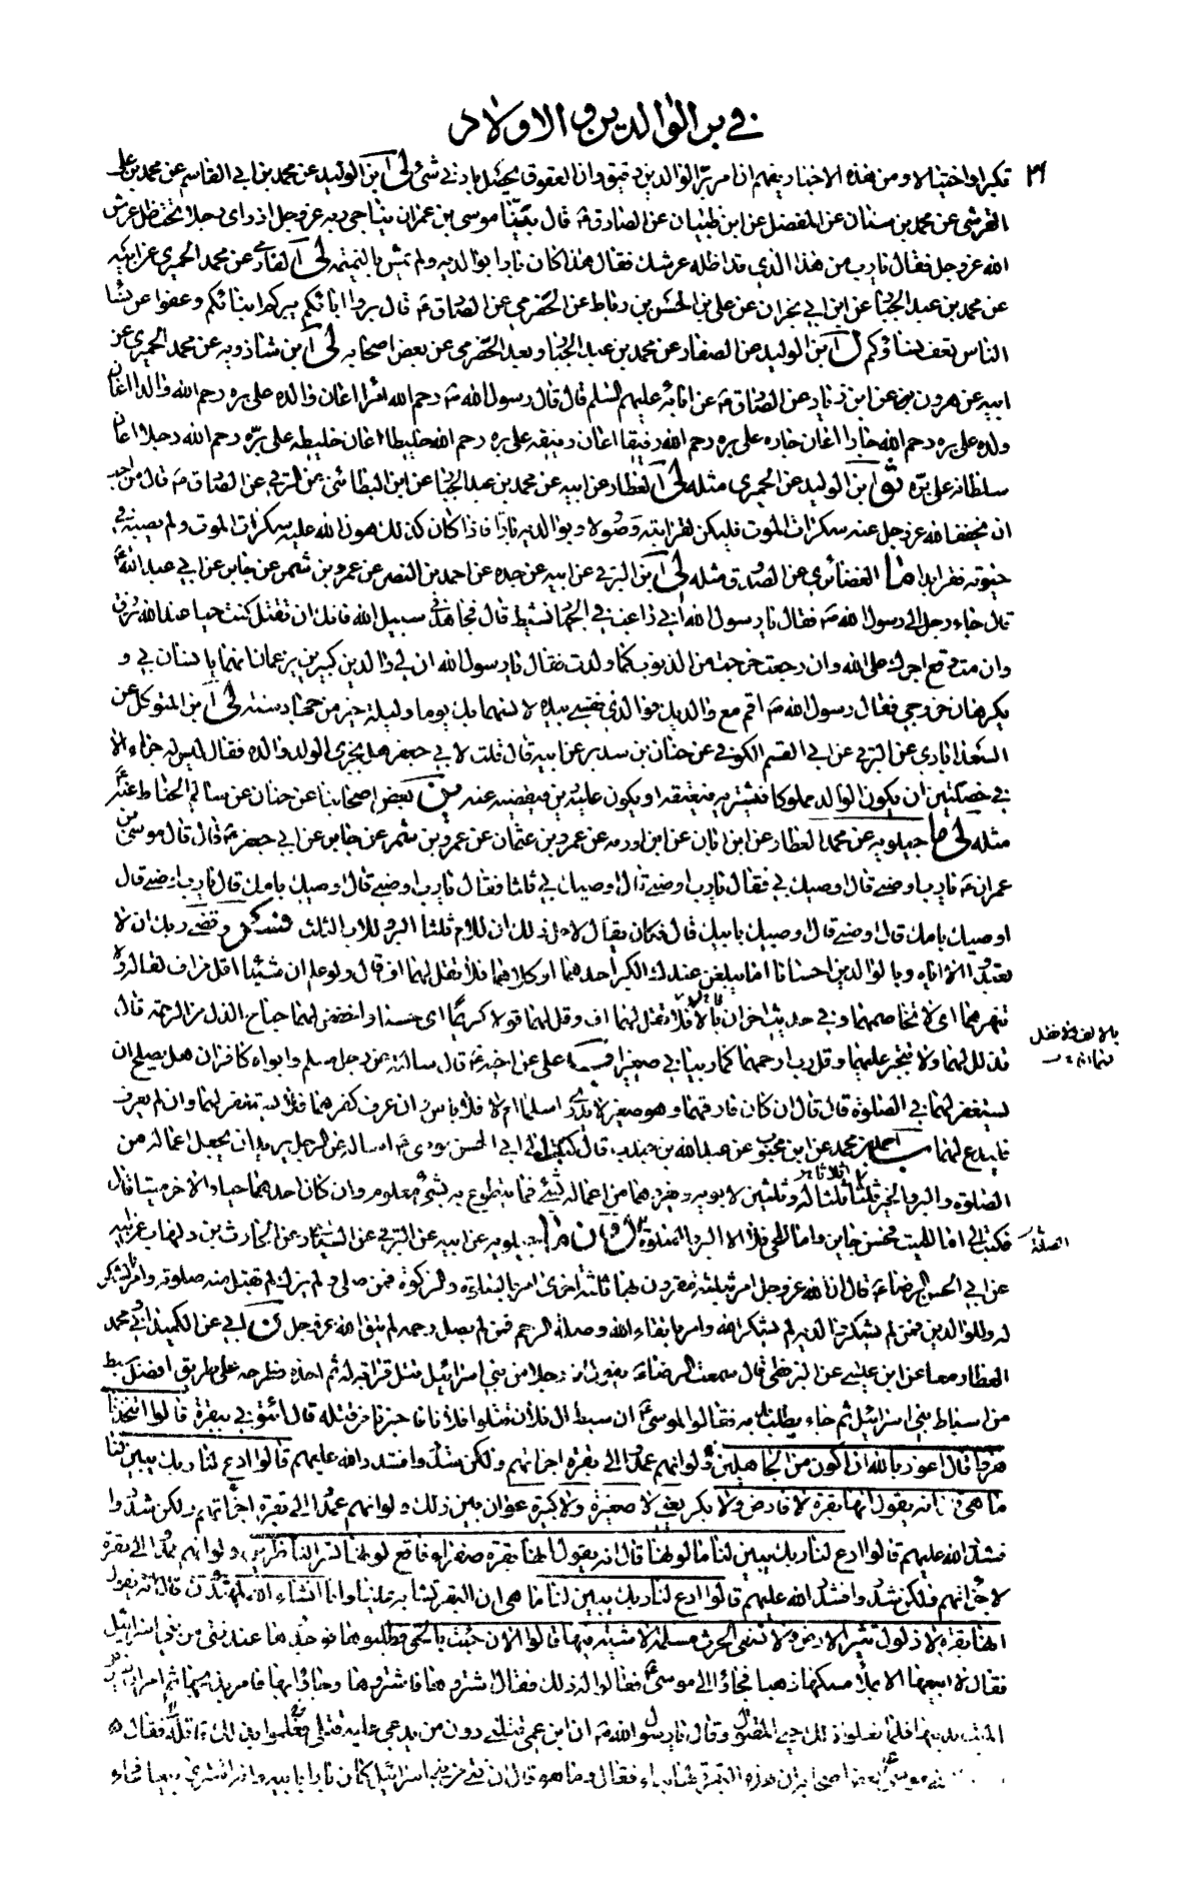 في بر الوالدين والاولاد
٢١
تكبرا واختيالا ومن هذه الاخبار يفهم ان امر بر الوالدين دقيق وان العقوق يحصل بادنى شئ لى ابن الوليد عن محمد بن ابي القاسم عن محمد بن علي
القرشي عن محمد بن سنان عن المفضل عن ابن ظبيان عن الصادق ع قال بينا موسى بن عمران يناجي ربه عز وجل اذ راى رجلا تحت ظل عرش
الله عز وجل فقال يارب من هذا الذي قد اظله عرشك فقال هذا كان بارا بوالديه ولم يمش بالنميمة لى الفامي عن محمد الحميري عن ابيه
عن محمد بن عبد الجبار عن ابن ابي نجران عن علي بن الحسن بن رباط عن الحضرمي عن الصادق ع قال بروا ابائكم يبركم ابنائكم وعفوا عن نساء
الناس تعف نساؤكم ل ابن الوليد عن الصفار عن محمد بن عبد الجبار عن الحضرمي عن بعض اصحابه لى ابن شاذويه عن محمد الحميري عن
ابيه عن هرون عن ابن زياد عن الصادق ع عن ابائه عليهم السلم قال قال رسول الله ص رحم الله امرا اعان والده على بره رحم الله والدا اعان
ولده على بره رحم الله جارا اعان جاره على بره رحم الله رفيقا اعان رفيقه على بره رحم الله خليطا اعان خليطه على بره رحم الله رجلا اعان
سلطانه على بره ثو ابن الوليد عن الحميري مثله لى العطار عن ابيه عن محمد بن عبد الجبار عن ابن البطائني عن الرقي عن الصادق ع قال من احب
ان يخفف الله عز وجل عنه سكرات الموت فليكن لقرابته وصولا وبوالديه بارا فاذا كان كذلك هون الله عليه سكرات الموت ولم يصبه في
حيوته فقر ابدا ما الغضائري عن الصدوق مثله لى ابن البرقي عن ابيه عن جده عن احمد بن النضر عن عمرو بن شمر عن جابر عن ابي عبد الله ع
قال جاء رجل الى رسول الله ص فقال يا رسول الله اني راغب في الجهاد نشيط قال فجاهد في سبيل الله فانك ان تقتل كنت حيا عند الله ترزق
وان مت وقع اجرك على الله وان رجعت خرجت من الذنوب كما ولدت فقال يا رسول الله ان لي والدين كبيرين يزعمان انهما يانسان بي و
يكرهان خروجي فقال رسول الله ص اقم مع والديك فوالذي نفسي بيده لانسهما بك يوما وليلة خير من جهاد سنة لى ابن المتوكل عن
السعد ابادي عن البرقي عن ابي القسم الكوفي عن حنان بن سدير عن ابيه قال قلت لابي جعفر هل يجزي الولد والده فقال ليس له جزاء الا
في خصلتين ان يكون الوالد مملوكا فيشتريه فيعتقه او يكون عليه دين فيقضيه عنه ين بعض اصحابنا عن حنان عن سالم الحناط عنه ع
مثله لى ماجيلويه عن محمد العطار عن ابن ابان عن ابن اورمه عن عمرو بن عثمان عن عمرو بن شمر عن جابر عن ابي جعفر ع قال قال موسى بن
عمران ع يارب اوصني قال اوصيك بي فقال يارب اوصني قال اوصيك بي ثلثا فقال يارب اوصني قال اوصيك بامك قال يارب اوصني قال
اوصيك بامك قال اوصني قال اوصيك بابيك قال فكان يقال لاجل ذلك ان للام ثلثا البر وللاب الثلث وقضى ربك ان لا
تعبدوا الا اياه وبالوالدين احسانا اما يبلغن عندك الكبر احدهما او كلاهما فلا تقل لهما اف قال ولو علم ان شيئا اقل من اف لقاله ولا
تنهرهما اى لا تخاصمهما وفي حديث اخر فلا تقل لهما اف وقل لهما قولا كريما اى حسنا واخفض لهما جناح الذل من الرحمة قال
تذلل لهما ولا تتجبر عليهما وقل رب ارحمهما كما ربياني صغيرا علي عن اخيه ع قال سالته عن رجل مسلم وابواه كافران هل يصلح ان
يستغفر لهما في الصلوة قال قال ان كان فارقهما وهو صغير لا يدري اسلما ام لا فلا باس وان عرف كفرهما فلا يستغفر لهما وان لم يعرف
فليدع لهما ب احمد بن محمد عن ابن محبوب عن عبد الله بن جندب قال كتبت الى ابي الحسن موسى ع اساله عن الرجل يريد ان يجعل اعماله من
الصلوة والبر والخير اثلاثا ثلثا له وثلثين لابويه او يفردهما من اعماله بشئ مما يتطوع به بشئ معلوم وان كان احدهما حيا والاخر ميتا قال
فكتب الى اما للميت فحسن جايز واما للحي فلا الا البر والصلة ل ن ماجيلويه عن ابيه عن البرقي عن السياري عن الحارث بن دلهاث عن ابيه
عن ابي الحسن الرضا ع قال ان الله عز وجل امر بثلثة مقرون بها ثلثة اخرى امر بالصلوة والزكوة فمن صلى ولم يزك لم تقبل منه صلوته وامر بالشكر
له وللوالدين فمن لم يشكر والديه لم يشكر الله وامر باتقاء الله وصلة الرحم فمن لم يصل رحمه لم يتق الله عز وجل ن ابي عن الكميداني ومحمد
العطار معا عن ابن عيسى عن البزنطي قال سمعت الرضا ع يقول ان رجلا من بني اسرائيل قتل قرابة له ثم اخذه فطرحه على طريق افضل سبط
من اسباط بني اسرائيل ثم جاء يطلب بدمه فقالوا لموسى ع ان سبط ال فلان قتلوا فلانا فاخبرنا من قتله قال ائتوني ببقرة قالوا اتتخذنا
هزوا قال اعوذ بالله ان اكون من الجاهلين ولو انهم عمدوا الى بقرة اجزاتهم ولكن شددوا فشدد الله عليهم قالوا ادع لنا ربك يبين لنا
ما هي قال انه يقول انها بقرة لا فارض ولا بكر يعني لا صغيرة ولا كبيرة عوان بين ذلك ولو انهم عمدوا الى بقرة اجزاتهم ولكن شددوا
فشدد الله عليهم قالوا ادع لنا ربك يبين لنا ما لونها قال انه يقول انها بقرة صفراء فاقع لونها تسر الناظرين ولو انهم عمدوا الى بقرة
لاجزاتهم ولكن شددوا فشدد الله عليهم قالوا ادع لنا ربك يبين لنا ما هي ان البقر تشابه علينا وانا انشاء الله لمهتدون قال انه يقول
انها بقرة لا ذلول تثير الارض ولا تسقى الحرث مسلمة لا شية فيها قالوا الان جئت بالحق فطلبوها فوجدوها عند فتى من بني اسرائيل
فقال لا ابيعها الا بملا مسكها ذهبا فجاؤا الى موسى ع فقالوا له ذلك فقال اشتروها فاشتروها وجاؤا بها فامر بذبحها ثم امر ان يضرب
الميت بذنبها فلما فعلوا ذلك حيي المقتول وقال يا رسول الله ان ابن عمي قتلني دون من يدعى عليه قتلي فعلموا بذلك قاتله فقال
موسى بعض اصحابه ان هذه البقرة لها نباء فقال وما هو قال ان فتى من بني اسرائيل كان بارا بابيه وانه اشترى بيعا فجاء
الصلة